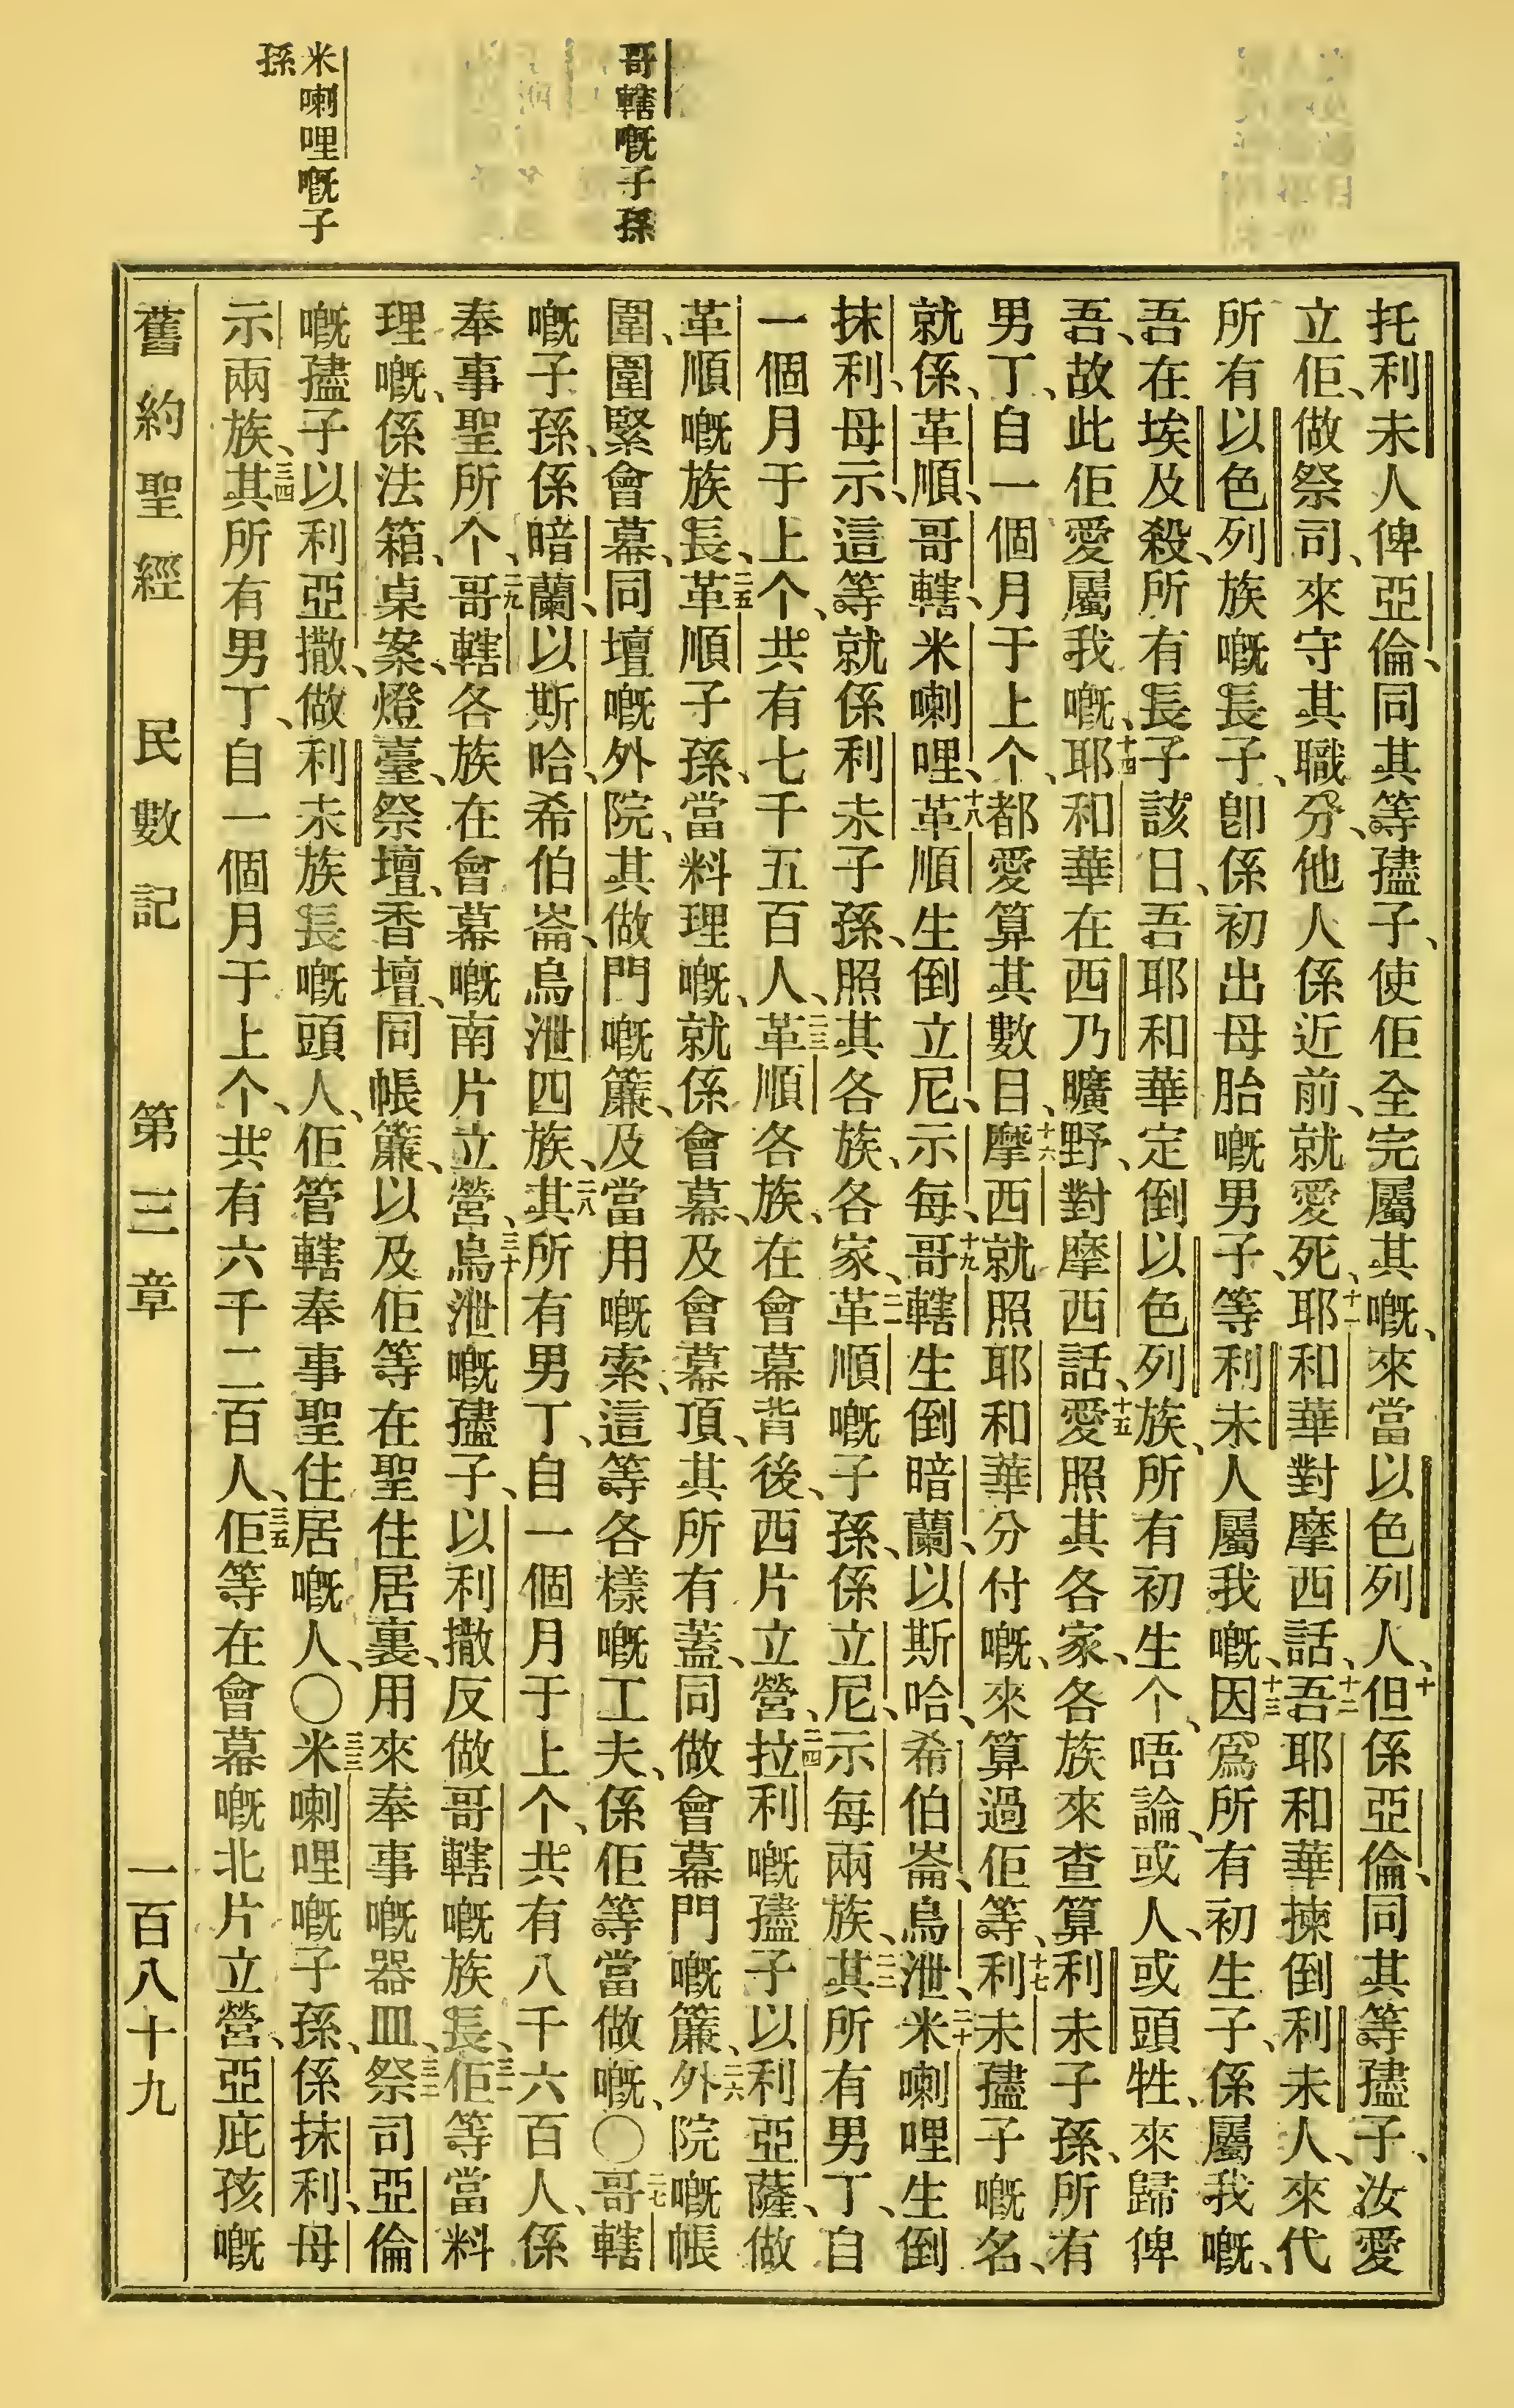 哥轄嘅子孫
米喇哩嘅子
孫
托利未人俾亞倫、同其等孻子、使佢全完屬其嘅、來當以色列人、十但係亞倫、同其等孻子、汝愛
立佢、做祭司、來守其職分、他人係近前、就愛死、十一耶和華對摩西話、十二吾耶和華揀倒利未人、來代
所有以色列族嘅長子、卽係初出母胎嘅男子、等利未人屬我嘅、十三因爲所有初生子、係屬我嘅、
吾在埃及殺、所有長子該日、吾耶和華定倒以色列族、所有初生个、唔論、或人、或頭牲、來歸俾
吾、故此佢愛屬我嘅、十四耶和華在西乃曠野、對摩西話、十五愛照其各家、各族來查算利未子孫、所有
男丁、自一個月于上个、都愛算其數目、十六摩西就照耶和華分付嘅、來算過佢等、十七利未孻子嘅名、
就係、革順、哥轄、米喇哩、十八革順生倒立尼、示每、十九哥轄生倒暗蘭、以斯哈、希伯崙、烏泄、二十米喇哩生倒
抹利、母示、這等就係利未子孫、照其各族、各家、二一革順嘅子孫、係立尼、示每兩族、二二其所有男丁、自
一個月于上个、共有七千五百人、二三革順各族、在會幕背後、西片立營、二四拉利嘅孻子以利亞薩、做
革順嘅族長、二五革順子孫、當料理嘅、就係會幕、及會幕頂、其所有蓋、同做會幕門嘅簾、二六外院嘅帳
圍、圍緊會幕、同壇嘅外院、其做門嘅簾、及當用嘅索、這等各樣嘅工夫、係佢等當做嘅、〇二七哥轄
嘅子孫、係暗蘭、以斯哈、希伯崙、烏泄四族、二八其所有男丁、自一個月于上个、共有八千六百人、係
奉事聖所个、二九哥轄各族在會幕嘅南片立營、三十烏泄嘅孻子、以利撒反做哥轄嘅族長、三一佢等當料
理嘅、係法箱、桌案、燈臺、祭壇、香壇、同帳簾、以及佢等在聖住居裏、用來奉事嘅器皿、三二祭司亞倫
嘅孻子以利亞撒、做利未族長嘅頭人、佢管轄奉事聖住居嘅人、〇三三米喇哩嘅子孫、係抹利、母
示兩族、三四其所有男丁、自一個月于上个、共有六千二百人、三五佢等在會幕嘅北片立營、亞庇孩嘅
舊約聖經　民數記　第三章　一百八十九